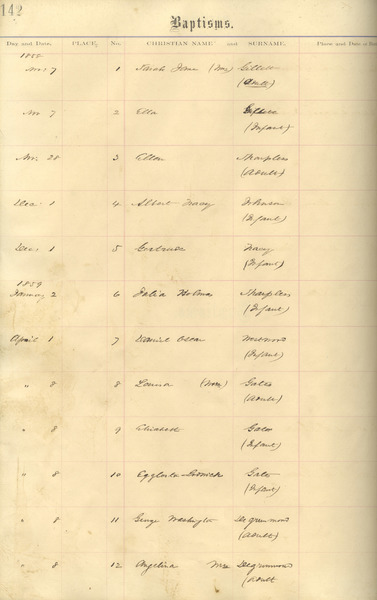 142
Baptisms.
Day and Date. PLACE. No. CHRISTIAN NAME and SURNAME. Place and Date of
Nov. 7 1 Sarah Jane (Mrs)
(Adult)
Nov 7 2 Ella
(Infant)
Nov. 28 3 Ellen Sharpless
(Adult)
Dec. 1 4 Albert Johnson
(Infant)
Dec. 1 5 Gertrude
(Infant)
1859
January 2 6 Julia Holmes Sharpless
(Infant)
April 1 7 Daniel Oscar
(Infant)
" 8 8 (Mrs) Gates
(Adult)
" 8 9 Elizabeth Gates
(Infant)
" 8 10 Gates
(Infant)
" 8 11 George Washington Degrummond
(Adult)
" 8 12 Angelina Mrs Degrummond
(Adult